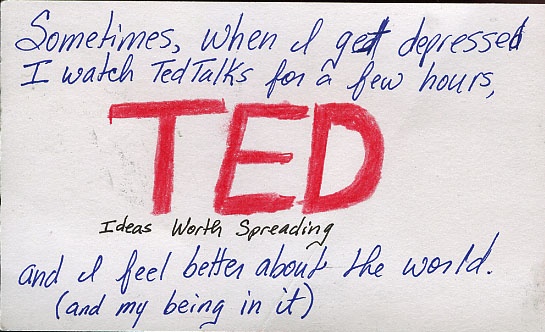 Sometimes, when I get depressed
I watch TedTalks for a few hours,
TED
Ideas Worth Spreading
and I feel better about the world.
(and my being in it)